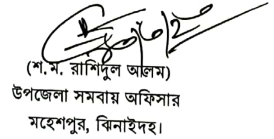 (শ.ম. রাশিদুল আলম)
উপজেলা সমবায় অফিসার
মহেশপুর, ঝিনাইদহ।